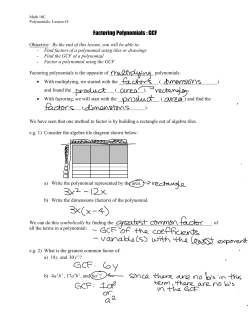 Math 10C
Polynomials: Lesson #3
Factoring Polynomials : GCF
Objective: By the end of this lesson, you will be able to:
- Find factors of a polynomial using tiles or drawings
- Find the GCF of a polynomial
- Factor a polynomial using the GCF
Factoring polynomials is the opposite of multiplying polynomials:
• With multiplying, we started with the factors (dimensions)
and found the product (area) rectangle
• With factoring, we will start with the product (area) and find the
factors (dimensions)
We have seen that one method to factor is by building a rectangle out of algebra tiles.
e.g. 1) Consider the algebra tile diagram shown below:
a) Write the polynomial represented by the area. → rectangle
3x² - 12x
b) Write the dimensions (factors) of the polynomial.
3x(x-4)
We can do this symbolically by finding the greatest common factor of
all the terms in a polynomial: - GCF of the coefficients
- variable(s) with the lowest exponent
e.g. 2) What is the greatest common factor of
a) 18y and 30y²?
GCF: 6y
b) 4a²b³, 15a³b², and 6a²? since there are no b's in this
term, there are no b's
in the GCF
GCF: 1a²
or
a²